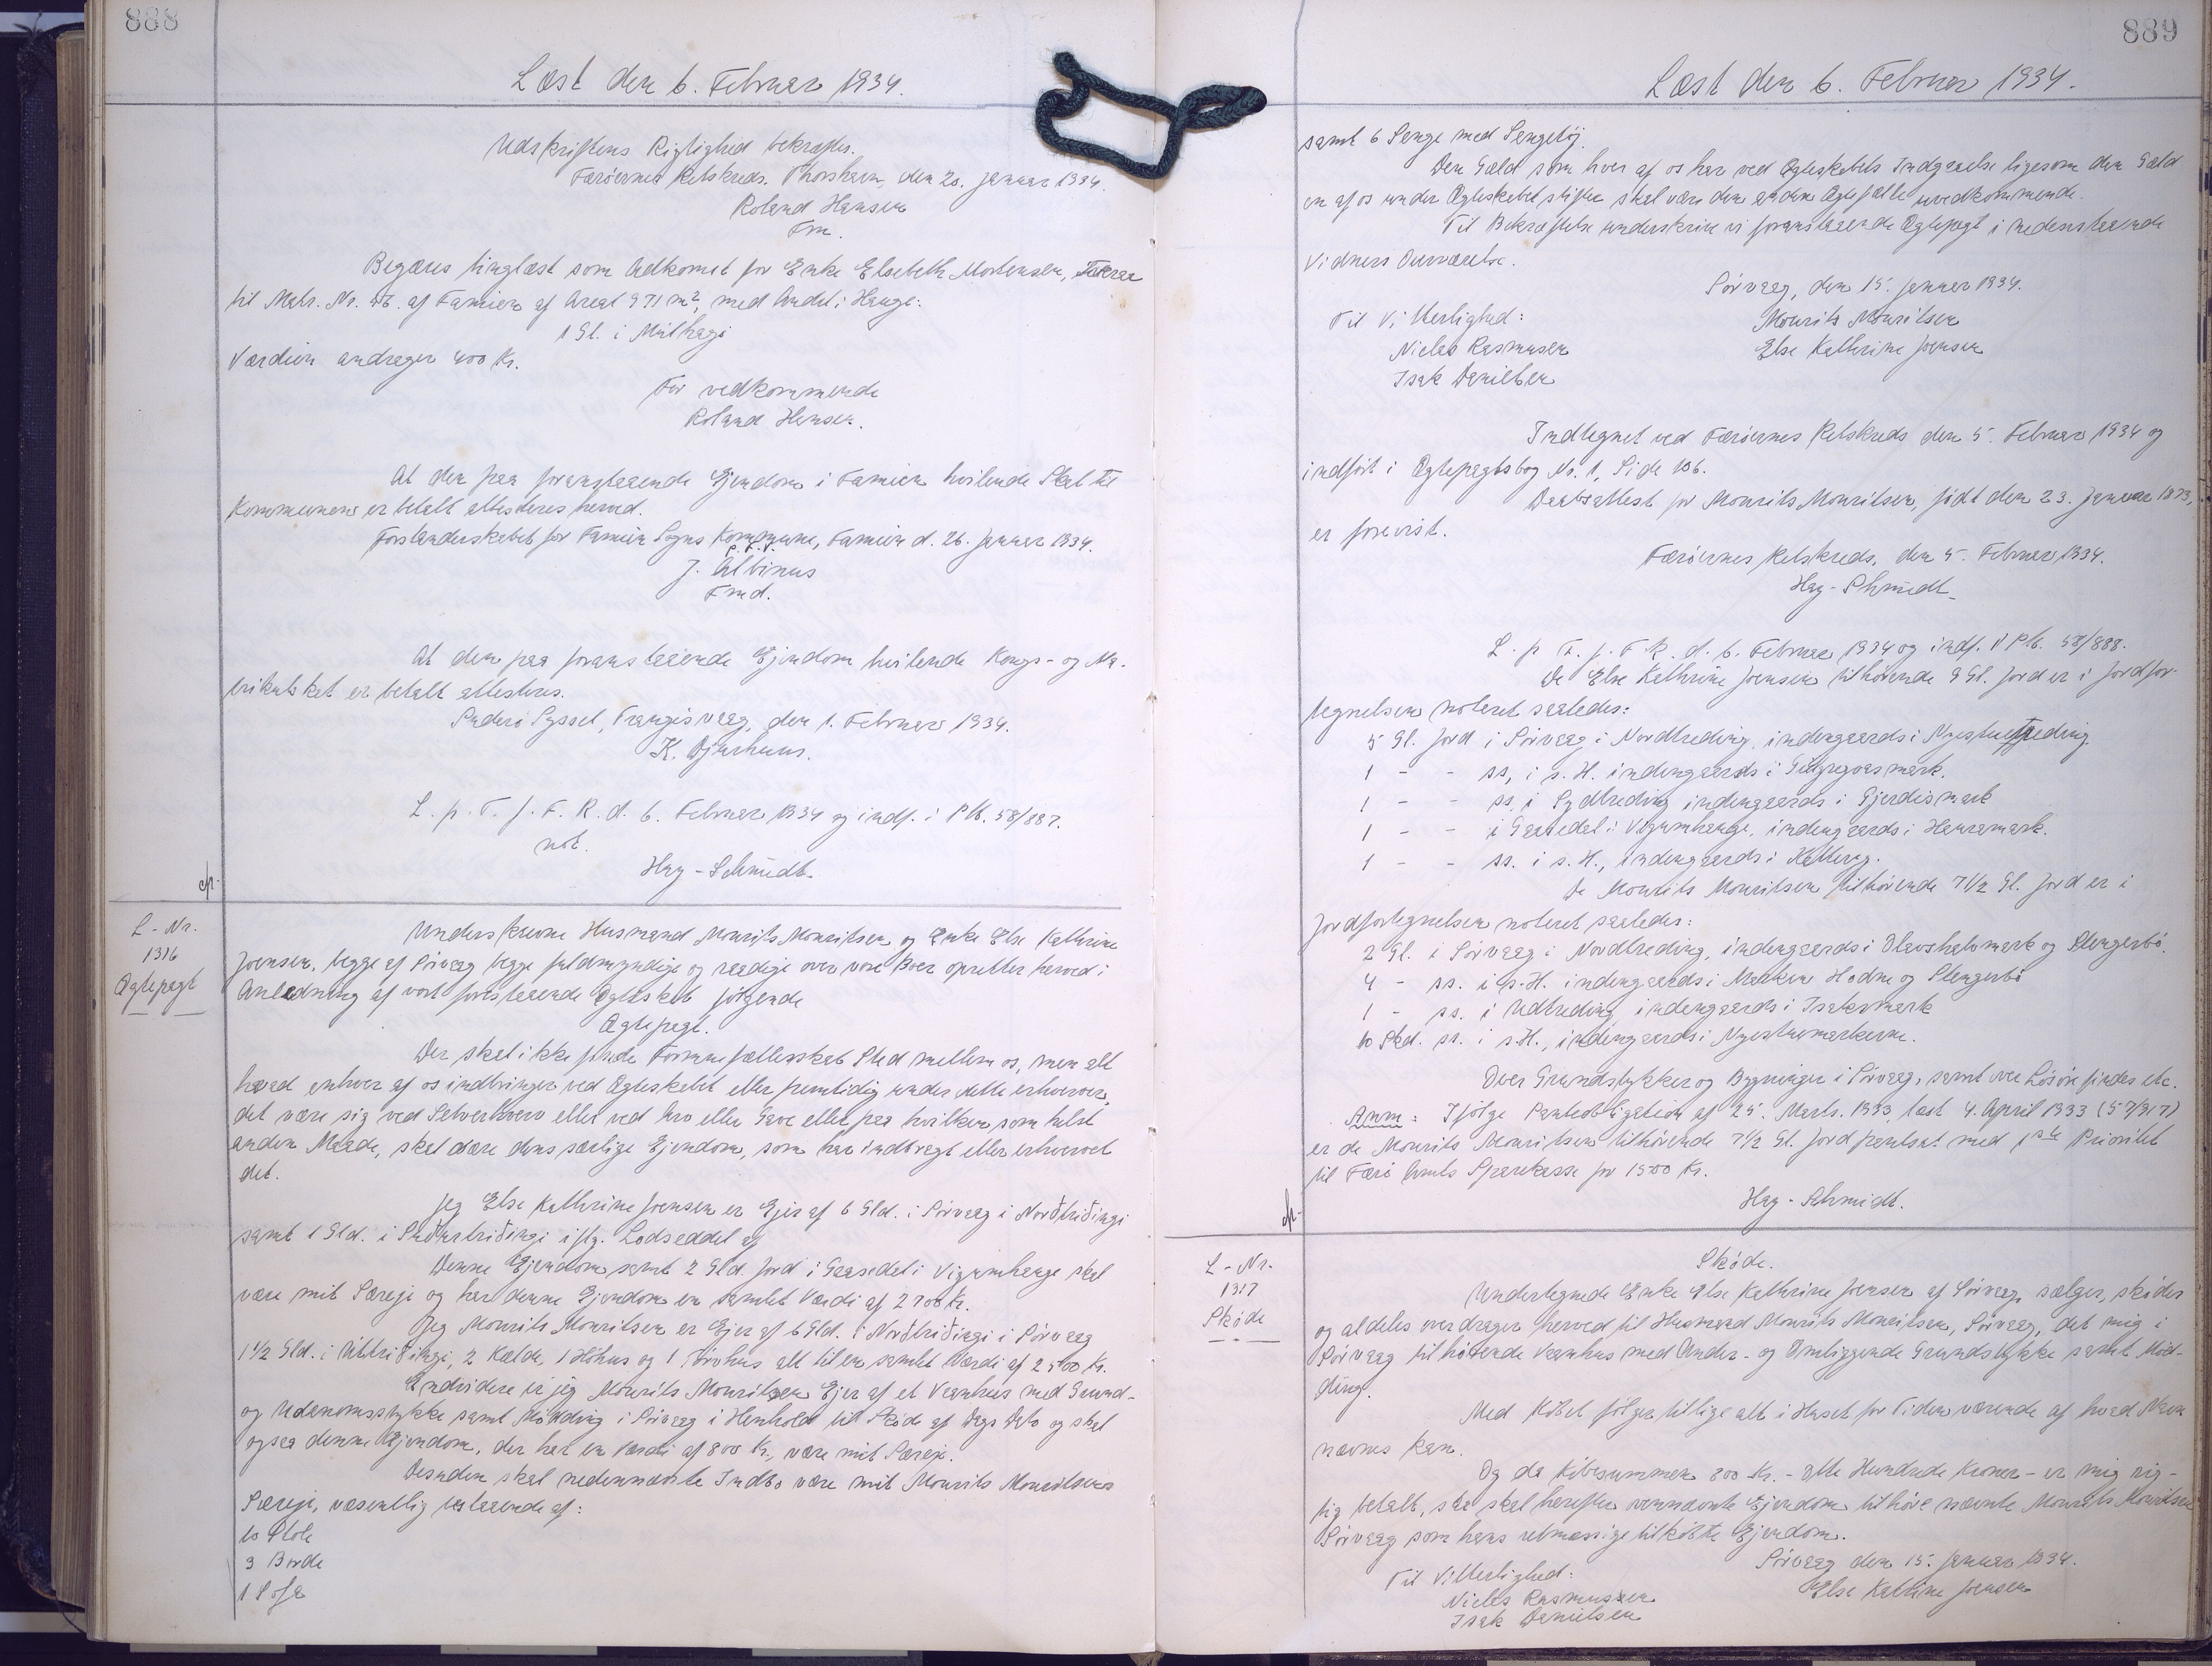 888
Læst den 6. Februar 1934.
Udskriftens Rigtighed bekræftes.
Færøernes Retskreds. Thorshavn, den 20. Januar 1934.
Roland Hansen
Fm.
Begæres tinglæst som Adkomst for Enke Elsebeth Mortensen,
til Matr. Nr. af Famien af Areal 971 m², med Andel i Hauge:
1 Gl. i Múlhagi
Værdien andrager 400 Kr.
For vedkommende
Roland Hansen.
At den paa foranstaaende Ejendom i Famien hvilende Skat til
Kommunen er betalt attesteres herved.
Forstanderskabet for Famien Sogns Kommune, Famien d. 26. Januar 1934.
p. F. V.
J. Albinus
Fmd.
At den paa foranstaaende Ejendom hvilende Konge- og Ma-
trikulskat er betalt attesteres.
Suderø Syssel, Trangisvaag, den 1. Februar 1934.
K. Djurhuus.
L. p. T. f. F. R. d. 6. Februar 1934 og indf. i P.B. 58/887.
not.
Hay-Schmidt.
cfr.
L-Nr.
1316
Ægtepagt
Underskrevne Husmand Mourits Mouritsen og Enke Else Kathrine
Joensen, begge af Sörvaag begge fuldmyndige og raadige over vore Boer opretter herved i
Anledning af vort forestaaende Ægteskab følgende
Ægtepagt.
Der skal ikke finde Formuefællesskab Sted mellem os, men alt
hvad enhver af os indbringer ved Ægteskabet eller fremtidig under dette erhverver,
det være sig ved Selverhverv eller ved Arv eller Gave eller paa hvilken som helst
anden Maade, skal være dens særlige Ejendom, som har indbragt eller erhvervet
det.
Jeg Else Kathrine Joensen er Ejer af 6 Gld. i Sörvaag i Norðtriðingi
samt 1 Gld. i Suðurtriðingi iflg. Lodseddel af
Denne Ejendom samt 2 Gld. Jord i Gaasedal i Vigumhauge skal
være mit Særeje og har denne Ejendom en samlet Værdi af 2700 Kr.
Jeg Mourits Mouritsen er Ejer af 6 Gld. i Norðtriðingi i Sörvaag
1 1/2 Gld. i Úttriðingi, 2 Kælde, 1 Höhus og 1 Törvhus alt til en samlet Værdi af 2500 Kr.
Endvidere er jeg Mourits Mouritsen Ejer af et Vaanhus med Grund-
og Udenomsstykke samt Mödding i Sörvaag i Henhold til Skøde af Dags Dato og skal
ogsaa denne Ejendom, der har en Værdi af 800 Kr., være mit Særeje.
Desuden skal nedennævnte Indbo være mit Mourits Mouritsens
Særeje, væsentlig bestaaende af:
10 Stole
3 Borde
1 Sofa
889
Læst den 6. Februar 1934.
samt 6 Senge med Sengetöj.
Den Gæld som hver af os har ved Ægteskabets Indgaaelse ligesom den Gæld
en af os under Ægteskabet stifter skal være den anden Ægtefælle uvedkommende.
Til Bekræftelse underskrive vi foranstaaende Ægtepagt i nedenstaaende
Vidners Overværelse.
Sörvaag, den 15. Januar 1934.
Til Vitterlighed:
Mourits Mouritsen
Niclas Rasmussen
Else Kathrine Joensen
Isak Danielsen
Indtegnet ved Færöernes Retskreds den 5. Februar 1934 og
indført i Ægtepagtsbog No. 1, Side 106.
Daabsattest for Mourits Mouritsen, födt den 23. Januar 1873,
er forevist.
Færöernes Retskreds, den 5. Februar 1934.
Hay-Schmidt
L. p. T. f. F. R. d. 6. Februar 1934 og indf. i P.B. 58/888.
De Else Kathrine Joensen tilhörende 9 Gl. Jord er i Jordfor-
tegnelsen noteret saaledes:
5 Gl. Jord i Sörvaag i Nordtreding, indengaards i Nyestuetreding.
1 - - ss, i s. H. indengaards i
1 - - ss, i Sydtreding indengaards i Gjerdismark
1 - - i Gaasedal i Vigumhauge, indengaards i Hansamark.
1 - - ss. i s. H., indengaards i
De Mourits Mouritsen tilhörende 7 1/2 Gl. Jord er i
Jordfortegnelsen noteret saaledes:
2 Gl. i Sörvaag i Nordtreding, indengaards i og
4 - ss. i s. H. indengaards i Marken og
1 - ss. i Udtreding indengaards i Isaksmark
10 Skd. ss. i s. H., indengaards i Nyestuemarkerne.
Over Grundstykker og Bygninger i Sörvaag, samt over Lösöre findes etc.
Anm: Ifölge Panteobligation af 25. Marts. 1933, læst 4. April 1933 (57/917)
er de Mourits Mouritsen tilhörende 7 1/2 Gl. Jord pantsat med 1ste Prioritet
til Færö Amts Sparekasse for 1500 Kr.
Hay-Schmidt.
cfr.
L-Nr.
1317
Skøde
Skøde.
Undertegnede Enke Else Kathrine Joensen af Sörvaag, sælger, skøder
og aldeles overdrager herved til Husmand Mourits Mouritsen, Sörvaag, det mig i
Sörvaag tilhörende Vaanhus med Under- og Omliggende Grundstykke samt Möd-
ding.
Med Köbet fölger tillige alt i Huset for Tiden værende af hvad Navn
nævnes kan.
Og da Köbesummen 800 Kr. - otte Hundrede Kroner - er mig rig-
tig betalt, saa skal herefter ovennævnte Ejendom tilhöre nævnte Mourits Mouritsen
Sörvaag som hans retmæssige tilköbte Ejendom.
Sörvaag den 15. Januar 1934.
Til Vitterlighed:
Else Katrine Joensen
Niclas Rasmussen
Isak Danielsen